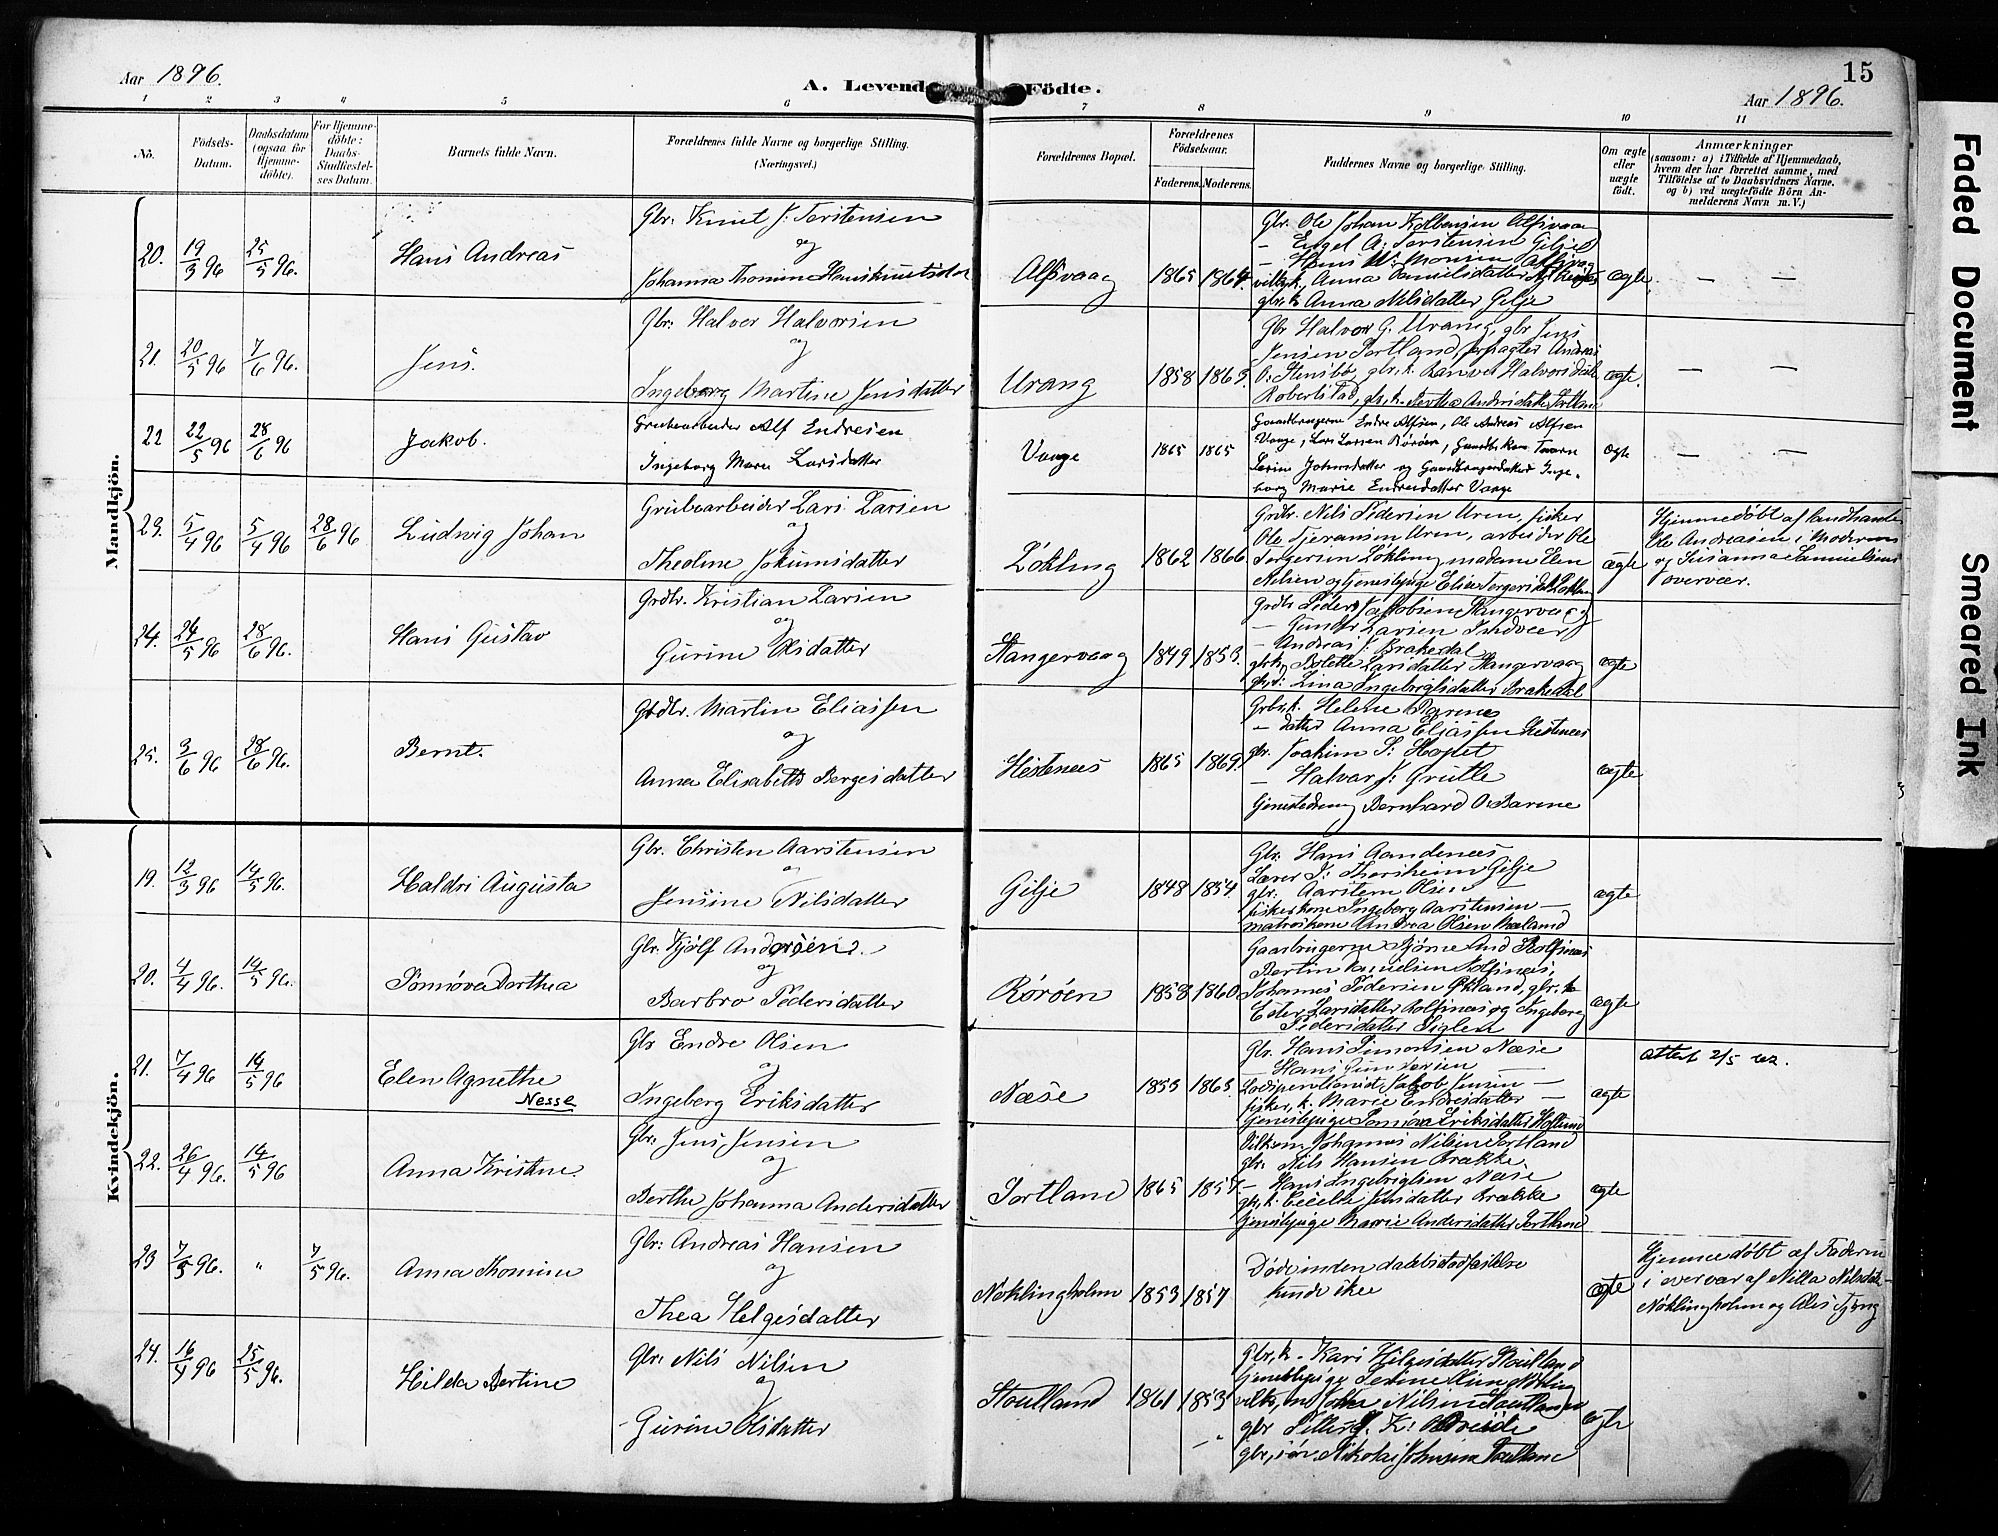 Aar 1896.
A. Levende Födte.
15
Aar 1896.
1 2 3 4 5 6 7 8 9 10 11
No.
Födsels-Datum.
Daabsdatum (ogsaa for Hjemme-döbte).
For Hjemme-döbte: Daabs-Stadfæstel-ses Datum.
Barnets fulde Navn.
Forældrenes fulde Navne og borgerlige Stilling. (Næringsvei.)
Forældrenes Bopæl.
Forældrenes Födselsaar.
Faderens. Moderens.
Faddernes Navne og borgerlige Stilling.
Om ægte eller uægte födt.
Anmærkninger
(saasom: a) i Tilfælde af Hjemmedaab,
hvem der har forrettet samme, med
Tilföielse af to Daabsvidners Navne,
og b) ved uægtefödte Börn An-
melderens Navn m. V.)
Mandkjön.
20. 19/3 96 25/5 96. Hans Andreas
Gbr. Knut J. Torstensen
og
Johanna Thomine Hansknutsdtr
Alfsvaag 1865 1864.
Gbr. Ole Johan Kolbensen Alfsvaag
— Engel A. Torstensen Gilje
— Hans M. Monsen Alfsvaag
Anna Danielsdatter
gbr.k. Anna Nilsdatter Gilje
ægte — —
21. 20/5 96 7/6 96. Jens.
Gbr. Halvor Halvorsen
og
Ingeborg Martine Jensdatter
Urang 1858 1863.
Gbr Halvor G. Urang, gbr Jens
Jensen Tortland, forpagter Andreas
O. Stensbø, gbr.k. Ranvei Halvorsdatter
Robertstad, gbr.k. Berthe Andersdatter Tortland
ægte. — —
22 22/5 96 28/6 96 Jakob.
Grubearbeider Alf Endresen
Ingeborg Marie Larsdatter
Vaage 1865 1865
Gaardbrugerne Endre Alfsen, Ole Andreas Alfsen
Vaage, Lars Larsen Rörøen, Gaardbr.kone
Serine Johnsdatter og Gaardbrugerdatter Inge-
borg Marie Endresdatter Vaage
ægte — —
23. 5/4 96 5/4 96 28/6 96 Ludvig Johan
Grubearbeider Lars Larsen
og
Theoline Jokumsdatter
Løkling 1862 1866
Grdbr. Nils Pedersen Uren, fisker
Ole Tjeransen Uren, arbeider Ole
Torgersen Løkling, madame Elen
Nilsen og tjenestepige Elise Torgersdatter Løkling
ægte
Hjemmedøbt af landhandler
Ole Andreasen i Moderens
og Susanna Samuelsens
overvær.
24. 24/5 96 28/6 96. Hans Gustav
Grdbr. Kristian Larsen
og
Gurine Olsdatter
Stangervaag 1849 1853.
Grdbr Peder Jakobsen Stangervaag
— Gunder Larsen Indvær
— Andreas J. Brakedal
Bolette Larsdatter Stangervaag
Lina Ingebrigtsdatter Brakedal
ægte
25. 3/6 96 28/6 96. Bernt.
Grdbr. Martin Eliassen
og
Anna Elisabeth Børgesdatter
Hestenæs 1865 1869.
Grbr.k. Helene Barene
— datter Anna Eliassen Hestenæs
gbr. Joakim S. Hovlet
— Halvar J. Grutle
Tjenestedreng Bernhard O. Barene
ægte
Kvindekjön.
19. 12/3 96 14/5 96. Haldri Augusta
Gbr. Christen Aarstensen
og
Jensine Nilsdatter
Gilje 1848 1854.
Gbr. Hans Aandenæs
Lærer S. Thorsheim Gilje
gbr. Aarsten Olsen —
fiskerkone Ingeborg Aarstensen —
matroskone Andrea Olsen Mæland
ægte
20. 4/4 96. 14/5 96. Sønnøva Dorthea
Gbr. Kjølf Andersen.
og
Barbro Pedersdatter
Rørøen 1858 1860.
Gaardbrugerne Bjørne And Rolfsnes
Bertin Danielsen Rolfsnes,
Johannes Pedersen Økland, gbr.k.
Ester Larsdatter Rolfsnes og Ingeborg
Pedersdatter Siglen
ægte
21. 7/4 96 14/5 96 Elen Agnethe
Nesse
Gbr Endre Olsen
og
Ingeborg Eriksdatter
Næse 1853 1863.
Gbr. Hans Simonsen Næse
— Hans Gundersen —
Lodspensionist Jakob Jensen —
fisker.k. Marie Endresdatter —
Tjenestepige Sønnøva Eriksdatter
ægte
Attest 2/5
22. 26/4 96. 14/5 96 Anna Kristine.
Gbr. Jens Jensen
og
Berthe Johanna Andersdatter
Tortland 1865 1857.
Johannes Nilsen Tortland
gbr. Nils Hansen Brække.
— Hans Ingebrigtsen Næse
gbr.k. Cecelie Jensdatter Brække
tjenestepige Marie Andersdatter Tortland
ægte
23 7/5 96. „ 7/5 96. Anna Thomine
Gbr: Andreas Hansen
og
Thea Helgesdatter
Nøklingholm 1853 1857
Døde inden daabstadfæstelse
kunde skee
ægte
Hjemmedøbt af Faderen
i overvær af Nilla Nilsdatter
Nøklingholm og Ales Tjong
24. 16/4 96 25/5 96. Hilda Bertine
Gbr. Nils Nilsen
og
Gurine Olsdatter
Stoutland 1861 1853
Gbr.k. Kari Helgesdatter Stoutland
tjenestepige
Nilsen Stoutland
gbr
gbr.søn Nikolai Johnsen Stoutland
ægte
Faded Document
Smeared Ink